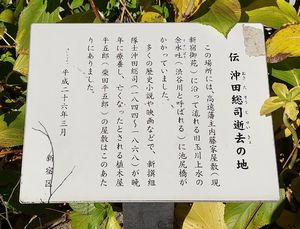 伝 沖田総司逝去の地
おき た そう じ せいきょ ち
この場所には、高遠藩主内藤家屋敷(現
新宿御苑)に沿って流れる旧玉川上水の
余水吐(渋谷川と呼ばれる)に池尻橋が
かかっていました。
多くの歴史小説や映画などで、新撰組
隊士沖田総司(一八四四~一八六八)が晩
年に療養し、亡くなったとされる植木屋
平五郎(柴田平五郎)の屋敷はこのあた
りにありました。
平成二十六年三月
新宿区